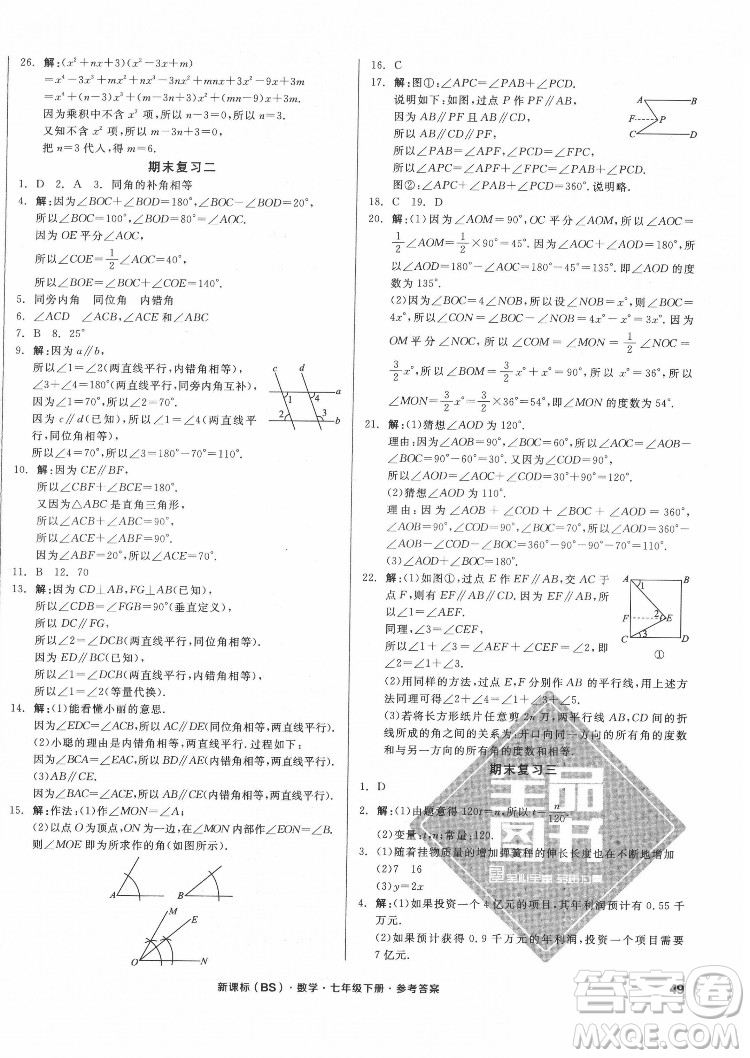 26. 解:(x²+nx+3)(x²-3x+m)
=x⁴-3x³+mx²+nx³-3nx²+mnx+3x²-9x+3m
=x⁴+(n-3)x³+(m-3n+3)x²+(mn-9)x+3m.
因为乘积中不含x³项,所以n-3=0,所以n=3.
又知不含x²项,所以m-3n+3=0.
把n=3代入,得m=6.
期末复习二
1. D 2. A 3. 同角的补角相等
4. 解:因为∠BOC+∠BOD=180°,∠BOC-∠BOD=20°,
所以∠BOC=100°,∠BOD=80°,所以∠AOC=80°.
因为OE平分∠AOC,
所以∠COE=1/2∠AOC=40°,
所以∠BOE=∠BOC+∠COE=140°.
5. 同旁内角 同位角 内错角
6. ∠ACD ∠ACB,∠ACE和∠ABC
7. B 8. 25°
9. 解:因为a∥b,
所以∠1=∠2(两直线平行,内错角相等),
∠3+∠4=180°(两直线平行,同旁内角互补).
因为∠1=70°,所以∠2=70°.
因为c∥d(已知),所以∠1=∠4(两直线平行,同位角相等),
所以∠4=70°,所以∠3=180°-∠4=110°.
c
d
a
b
1
4
2
3
10. 解:因为CE∥BF,
所以∠CBF+∠BCE=180°.
又因为△ABC是直角三角形,
所以∠ACB+∠ABC=90°,
所以∠ACE+∠ABF=90°.
因为∠ABF=20°,所以∠ACE=70°.
11. B 12. 70
13. 解:因为CD⊥AB,FG⊥AB(已知),
所以∠CDB=∠FGB=90°(垂直定义),
所以DC∥FG,
所以∠2=∠DCB(两直线平行,同位角相等).
因为ED∥BC(已知),
所以∠1=∠DCB(两直线平行,内错角相等),
所以∠1=∠2(等量代换).
14. 解:(1)能看懂小丽的意思.
因为∠DCE=∠ABC,所以AB∥DC(同位角相等,两直线平行).
(2)小聪的理由是内错角相等,两直线平行.过程如下:
因为∠BCA=∠EAC,所以BD∥AE(内错角相等,两直线平行).
15. 解:作法:(1)作∠MON=∠A;
(2)以点O为顶点,ON为一边,在∠MON内作∠EON=∠B,
则∠MOE即为所求作的角(如图所示).
A
B
M
E
O
N
16. C
17. 解:图①:∠APC=∠PAB+∠PCD.
说明如下:如图,过点P作PF∥AB,
因为AB∥PF且AB∥CD,
所以PF∥CD,
所以∠PAB=∠APF,∠PCD=∠FPC,
所以∠APC=∠PAB+∠PCD.
图②:∠APC+∠PAB+∠PCD=360°.
A
B
F
P
C
D
18. C 19. D
20. 解:(1)因为∠AOM=90°,OC平分∠AOM,所以∠AOC=
1/2∠AOM=1/2×90°=45°.因为∠AOC+∠AOD=180°,
所以∠AOD=180°-∠AOC=180°-45°=135°.即∠AOD的度
数为135°.
(2)因为∠BOC=4∠NOB,所以设∠NOB=x°,∠BOC=
4x°,所以∠CON=∠BOC-∠BON=4x°-x°=3x°.因为
OM平分∠CON,所以∠COM=∠MON=1/2∠CON=
3/2x°.因为∠BOM=3/2x°+x°=90°,所以x=36,所以
∠MON=3/2x°=3/2×36°=54°,即∠MON的度数为54°.
21. 解:(1)猜想∠AOD=120°.
理由:因为∠BOC=60°,所以∠AOC=∠AOB-
∠BOC=90°-60°=30°,
所以∠AOD=∠COD+∠AOC=90°+30°=120°.
(2)猜想∠AOD=110°.
理由:因为∠AOB+∠COD+∠BOC+∠AOD=360°,
∠AOB=∠COD=90°,∠BOC=70°,
所以∠AOD=360°-90°-90°-70°=110°.
(3)∠AOD+∠BOC=180°.
22. 解:(1)如图①,过点E作EF∥AB,交AC于
点F,则有EF∥CD,
所以∠1=∠AEF.
同理,∠3=∠CEF.
因为∠2=∠AEF+∠CEF,
所以∠2=∠1+∠3.
A
B
1
F
2
E
C
3
D
①
(2)用同样的方法,过点E,F分别作AB的平行线,由此可得
∠1+∠3=∠2+∠4.
(3)若将长方形纸片任意剪2n刀,两平行线间的折
线所成的角之间的关系为:开口向同一方向的所有角的度数
和与另一开口方向的所有角的度数和相等.
期末复习三
1. D
2. 解:(1)由题意得120t=n,所以t=n/120.
(2)变量:t,n;常量:120.
3. (1)随着挂物质量的增加弹簧秤的伸长长度也不断增加.
(2)7 16
(3)y=2x
4. 解:(1)如果投资一个4亿元的项目,其年利润预计有0.55千
万元.
(2)预计获得0.9千万元的年利润,投资一个7亿元的项目.
新课标(BS)·数学·七年级下册·参考答案
49
全品图书
答案卷
MXQE.COM